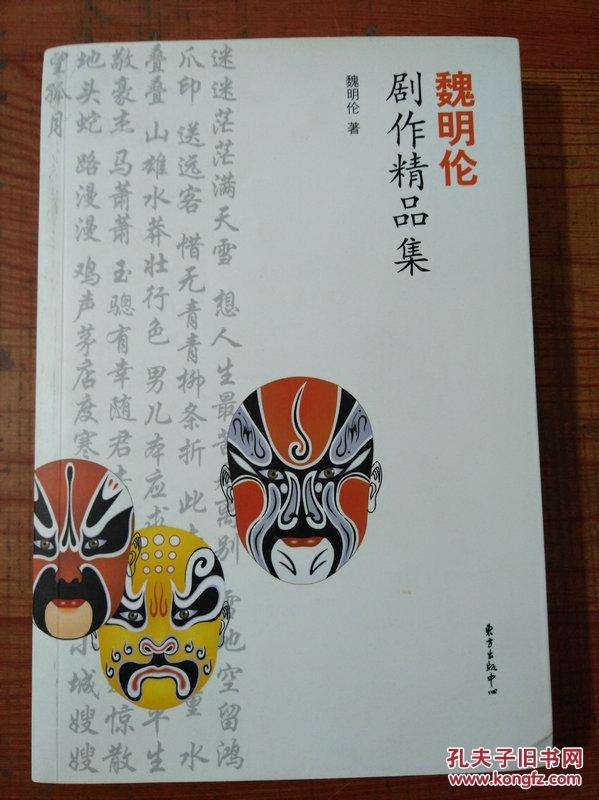 魏明伦
剧作精品集
魏明伦 著
迷迷茫茫满天雪 想人生最苦离别 雪地空留鸿
爪印 送远客 惜无青青柳条折 此 重 水
叠叠 山雄水莽壮行色 男儿本应求 生
敬豪杰 马萧萧 玉骢有幸随君去 惊散
地头蛇 路漫漫 鸡声茅店度寒 小城嫂嫂
望孤月
东方出版中心
孔夫子旧书网
www.kongfz.com